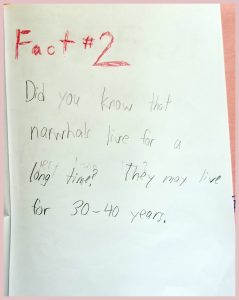 Fact #2
Did you know that
narwhals live for a
very
long time? They may live
for 30-40 years.